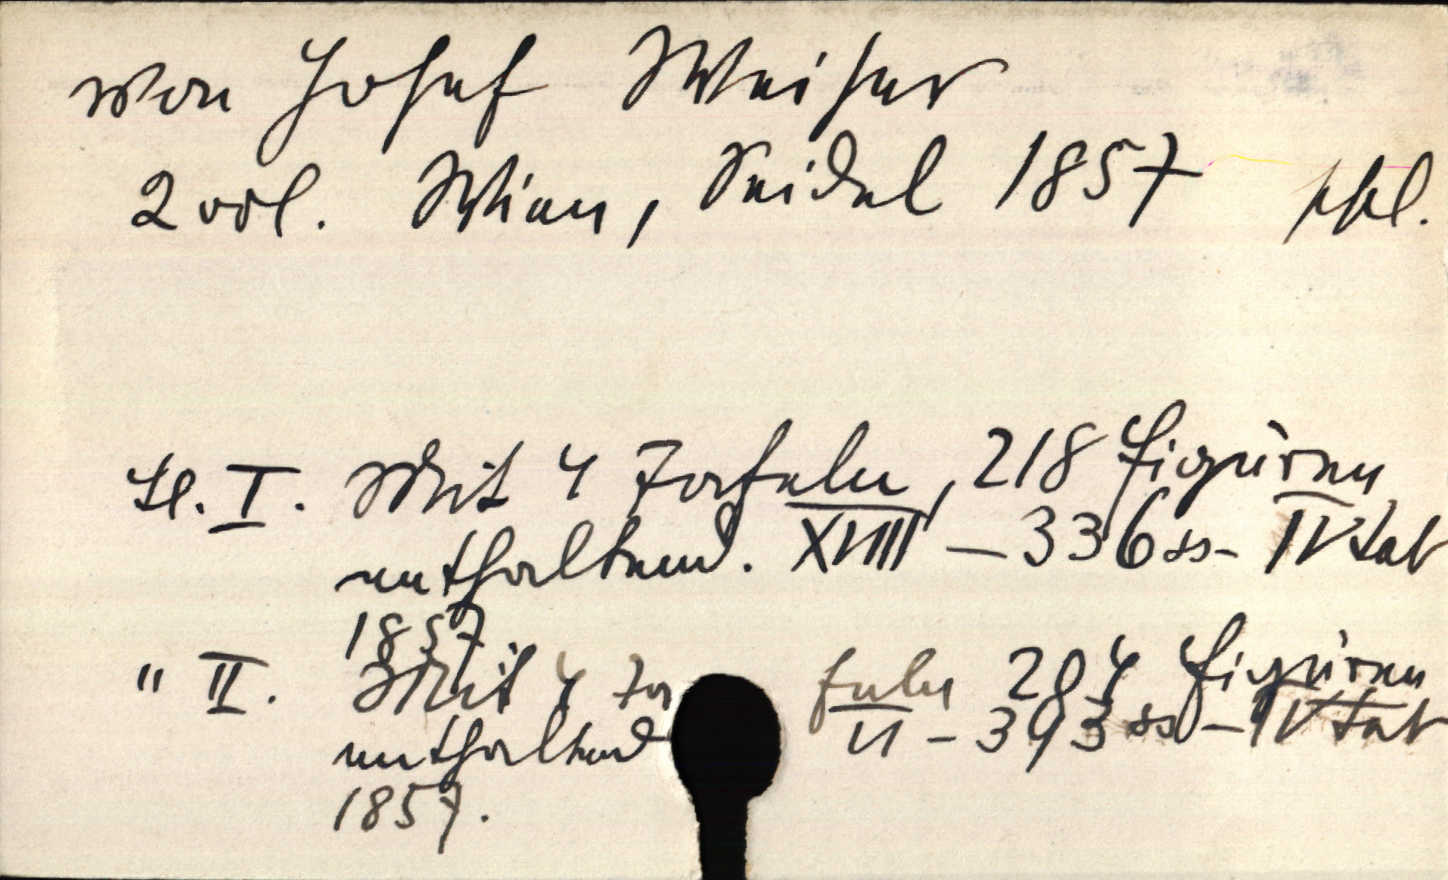 von Josef Weiser
2 vol. Wien, Seidel 1857 ppl.
Tl. I. Mit 4 Tafeln, 218 Figuren
enthaltend. XVIII – 336 ss – IV tab
1857
" II. Mit 4 Tafeln 204 Figuren
enthaltend VI – 393 ss – IV tab
1857.